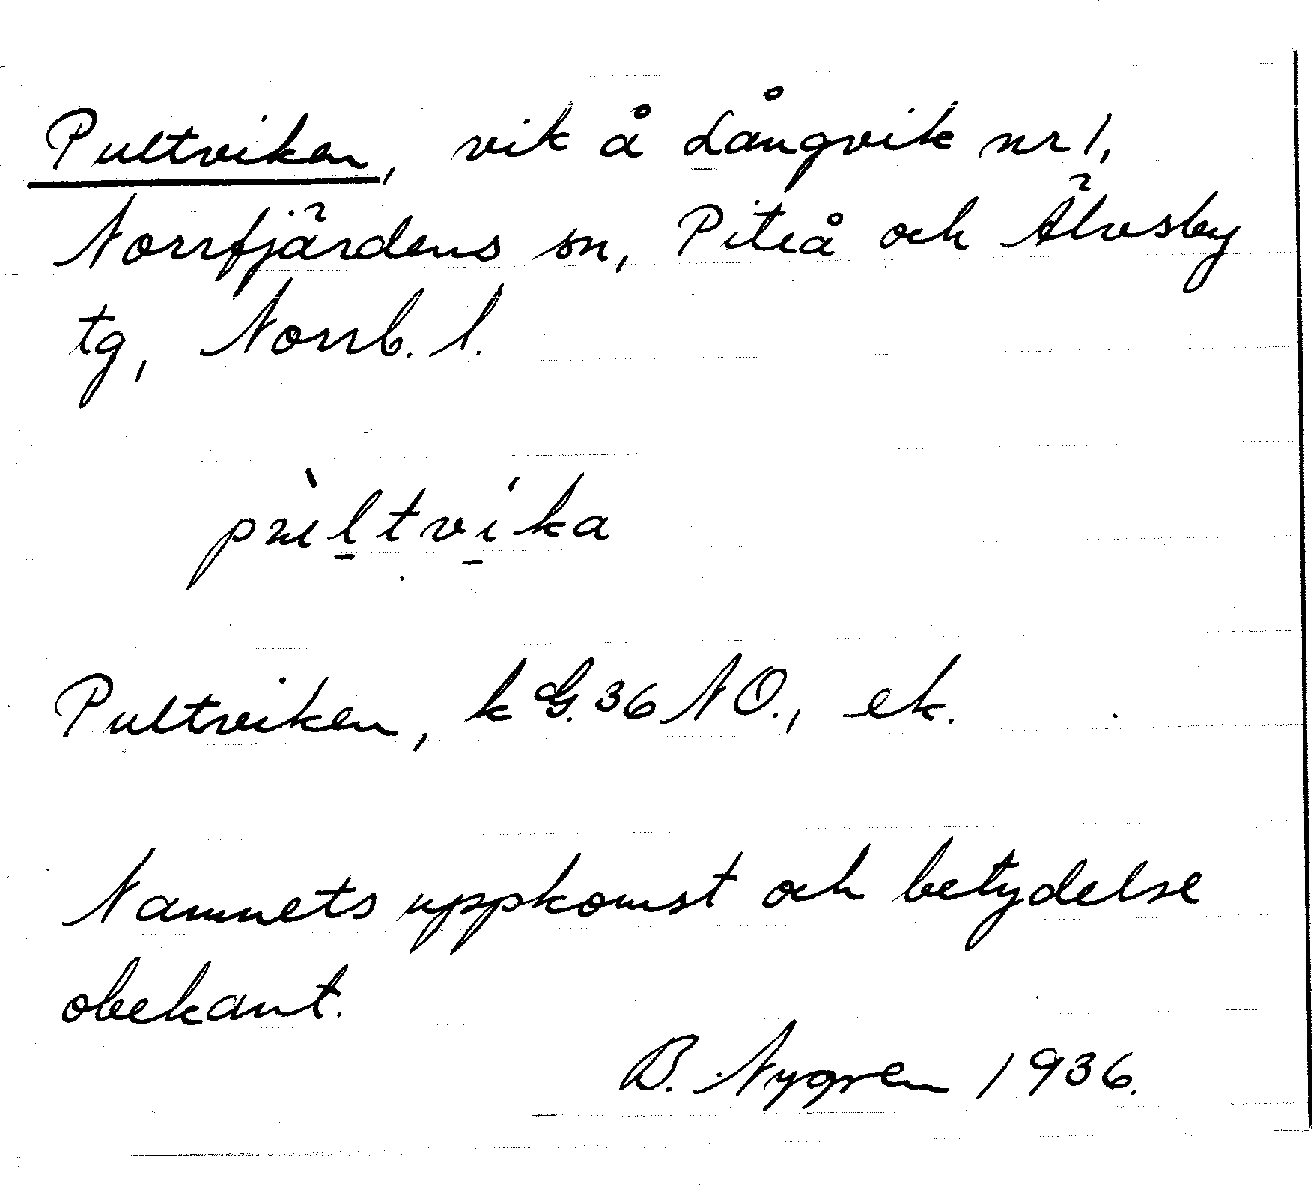 Pultviken, vik å Långvik nr 1,
Norrfjärdens sn, Piteå och Älvsby
tg, Norrb. l.
pùltvíka
Pultviken, k G. 36 NO., ek.
Namnets uppkomst och betydelse
obekant.
B. Nygren 1936.